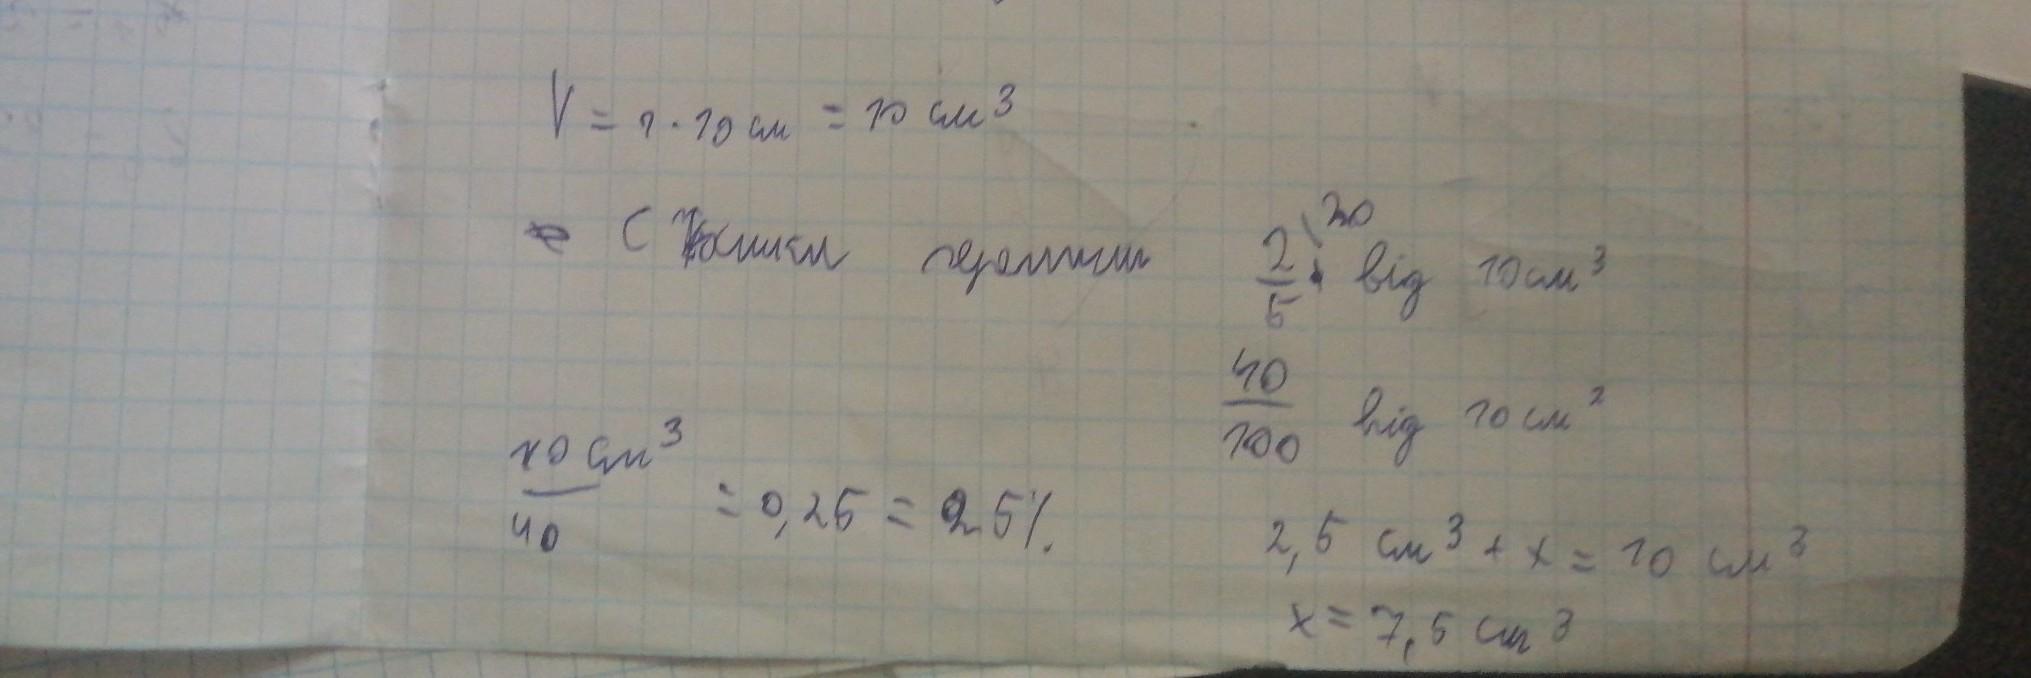 V = 1 · 10 см = 10 см³
2/5 \20 від 10 см³
40/100 від 10 см²
10 см³/40 = 0,25 = 25%.
2,5 см³ + x = 10 см³
x = 7,5 см³